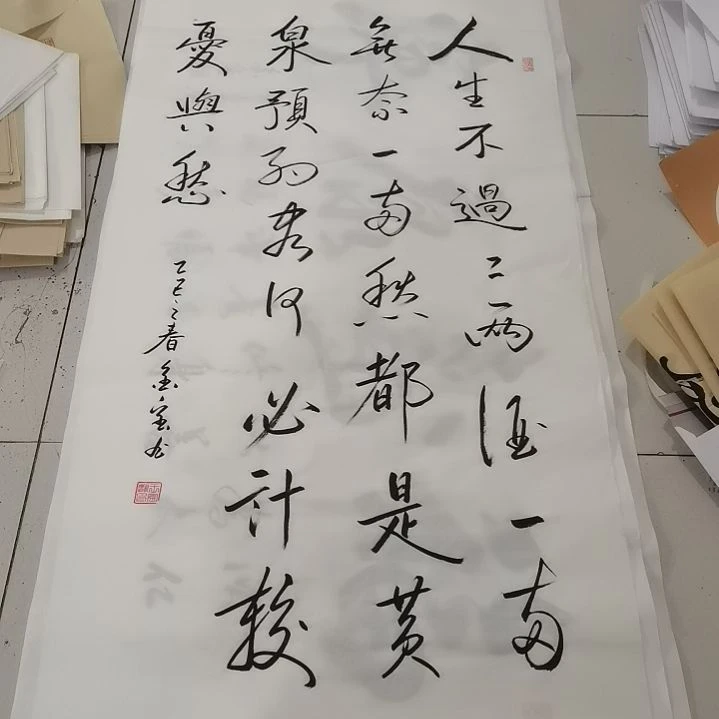 人生不過三兩酒一兩
無奈一兩愁都是黃
泉預約客何必計較
憂與愁
乙巳之春